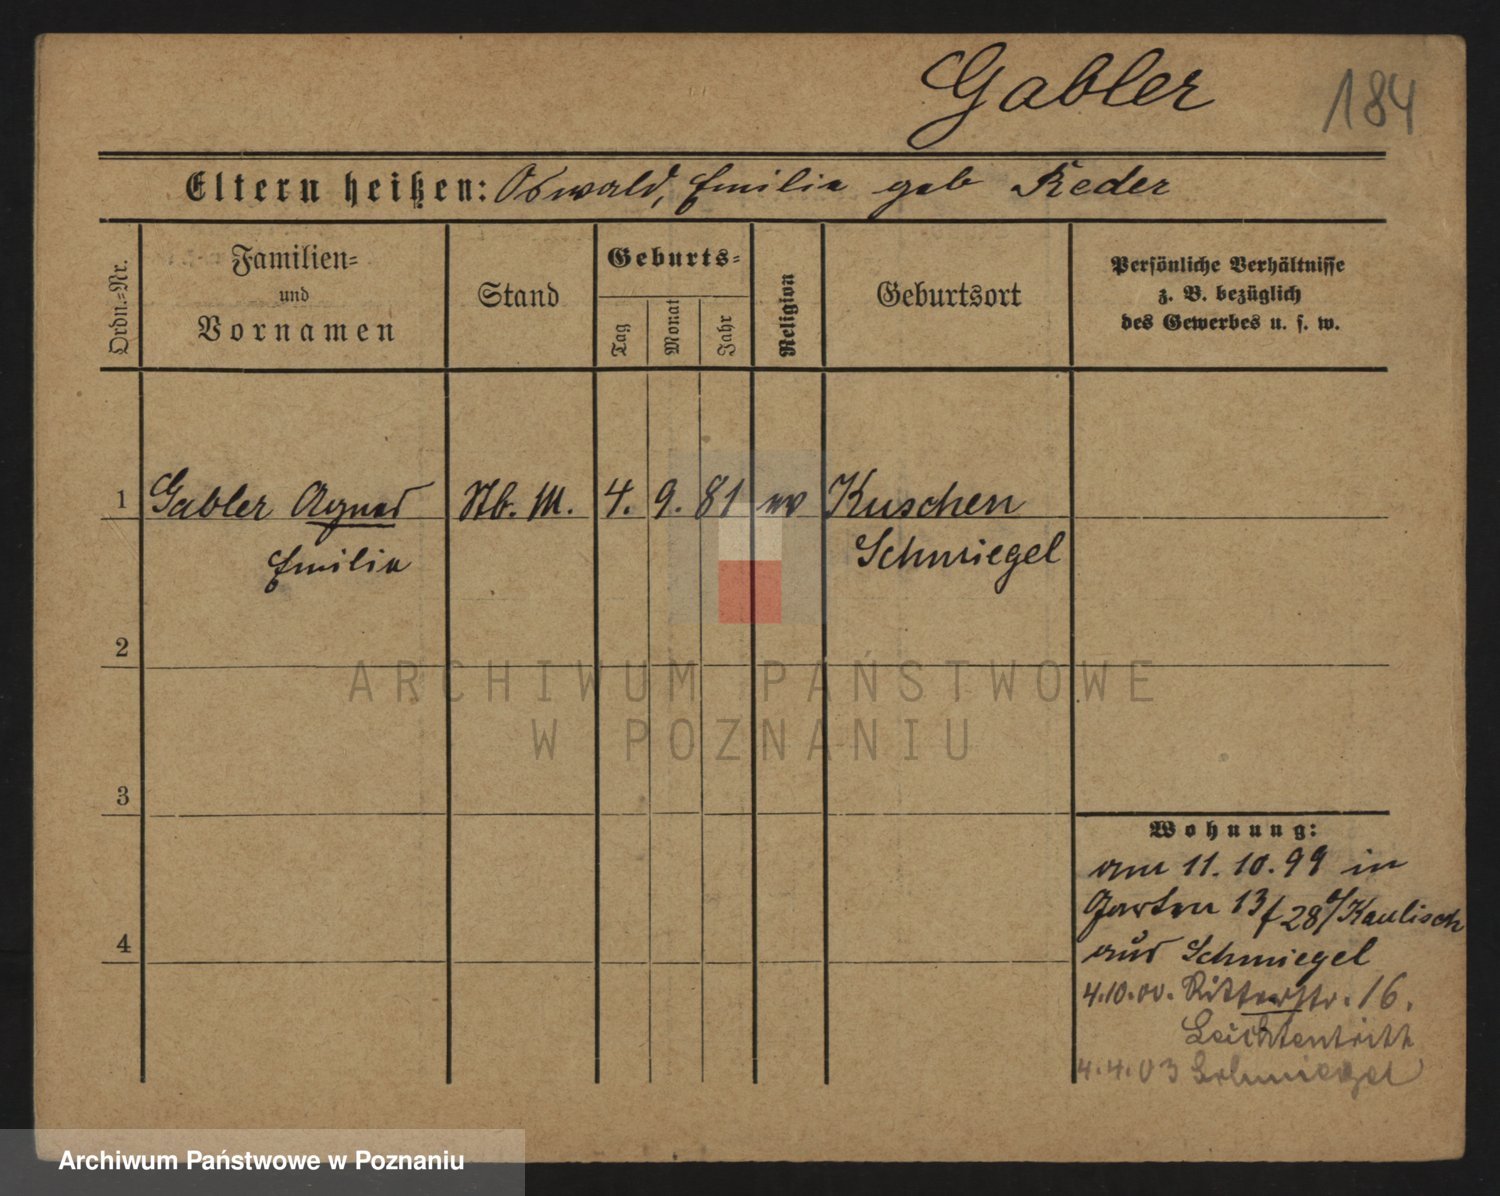 Gabler
184
Eltern heißen: Oswald, Emilie geb Reder
Ordn.=Nr.
Familien=
und
Vornamen
Stand
Geburts=
Tag
Monat
Jahr
Religion
Geburtsort
Persönliche Verhältnisse
z. B. bezüglich
des Gewerbes u. s. w.
1 Gabler Agnes Stb. M. 4. 9. 81 ev Kuschen
Emilie Schmiegel
2
3
4
ARCHIWUM PAŃSTWOWE
W POZNANIU
Wohnung:
am 11. 10. 99 in
Garten 13 28 Kaulisch
aus Schmiegel
4.10.00. Ritterstr. 16.
Leichtentritt
4.4.03 Schmiegel
Archiwum Państwowe w Poznaniu